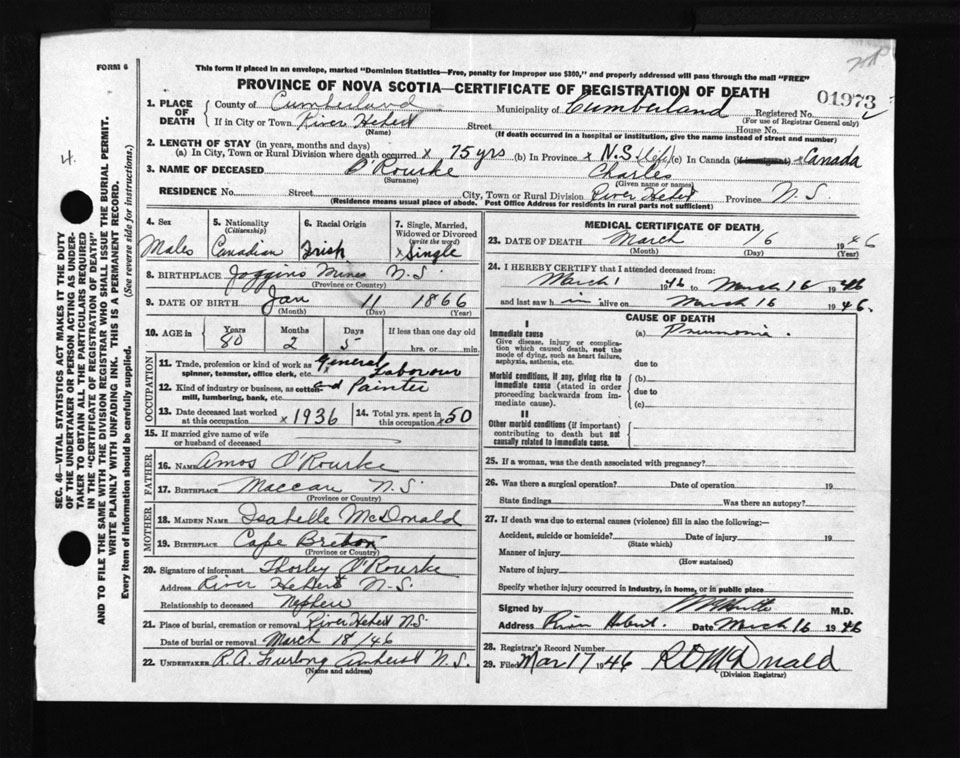 FORM 6
This form if placed in an envelope, marked "Dominion Statistics—Free, penalty for improper use $300," and properly addressed will pass through the mail "FREE"
PROVINCE OF NOVA SCOTIA—CERTIFICATE OF REGISTRATION OF DEATH
01973
1. PLACE OF DEATH
County of Cumberland Municipality of Cumberland Registered No.
(For use of Registrar General only)
If in City or Town River Hebert Street House No.
(Name) (If death occurred in a hospital or institution, give the name instead of street and number)
2. LENGTH OF STAY (in years, months and days)
(a) In City, Town or Rural Division where death occurred x 75 yrs (b) In Province x N.S. (life) (c) In Canada (if immigrant) x Canada
3. NAME OF DECEASED O'Rourke Charles
(Surname) (Given name or names)
RESIDENCE No. Street City, Town or Rural Division River Hebert Province N.S.
(Residence means usual place of abode. Post Office Address for residents in rural parts not sufficient)
4. Sex
Male
5. Nationality
(Citizenship)
Canadian
6. Racial Origin
Irish
7. Single, Married, Widowed or Divorced
(write the word)
x Single
8. BIRTHPLACE Joggins Mines N.S.
(Province or Country)
9. DATE OF BIRTH Jan 11 1866
(Month) (Day) (Year)
10. AGE in
Years Months Days If less than one day old
80 2 5 hrs. or min.
OCCUPATION
11. Trade, profession or kind of work as spinner, teamster, office clerk, etc. General Labourer
12. Kind of industry or business, as cotton mill, lumbering, bank, etc. and Painter
13. Date deceased last worked at this occupation x 1936
14. Total yrs. spent in this occupation x 50
15. If married give name of wife or husband of deceased
FATHER
16. NAME Amos O'Rourke
17. BIRTHPLACE Maccan N.S.
(Province or Country)
MOTHER
18. MAIDEN NAME Isabelle McDonald
19. BIRTHPLACE Cape Breton
(Province or Country)
20. Signature of informant O'Rourke
Address River Hebert N.S.
Relationship to deceased Nephew
21. Place of burial, cremation or removal River Hebert N.S.
Date of burial or removal March 18/46
22. UNDERTAKER R.A. Furlong Amherst N.S.
(Name and address)
MEDICAL CERTIFICATE OF DEATH
23. DATE OF DEATH March 16 1946
(Month) (Day) (Year)
24. I HEREBY CERTIFY that I attended deceased from:
March 1 1946 to March 16 1946
and last saw him alive on March 16 1946.
CAUSE OF DEATH
I
Immediate cause
Give disease, injury or complication which caused death, not the mode of dying, such as heart failure, asphyxia, asthenia, etc.
(a) Pneumonia.
due to
Morbid conditions, if any, giving rise to immediate cause (stated in order proceeding backwards from immediate cause).
(b)
due to
(c)
II
Other morbid conditions (if important) contributing to death but not causally related to immediate cause.
25. If a woman, was the death associated with pregnancy?
26. Was there a surgical operation? Date of operation 19
State findings Was there an autopsy?
27. If death was due to external causes (violence) fill in also the following:—
Accident, suicide or homicide? Date of injury 19
(State which)
Manner of injury
(How sustained)
Nature of injury
Specify whether injury occurred in industry, in home, or in public place
Signed by M.D.
Address River Hebert. Date March 16 1946
28. Registrar's Record Number
29. Filed Mar 17 1946 R D McDonald
(Division Registrar)
4.
SEC. 46—VITAL STATISTICS ACT MAKES IT THE DUTY
OF THE UNDERTAKER OR PERSON ACTING AS UNDER-
TAKER TO OBTAIN ALL THE PARTICULARS REQUIRED
IN THE "CERTIFICATE OF REGISTRATION OF DEATH"
AND TO FILE THE SAME WITH THE DIVISION REGISTRAR WHO SHALL ISSUE THE BURIAL PERMIT.
WRITE PLAINLY WITH UNFADING INK. THIS IS A PERMANENT RECORD.
Every item of information should be carefully supplied. (See reverse side for instructions.)